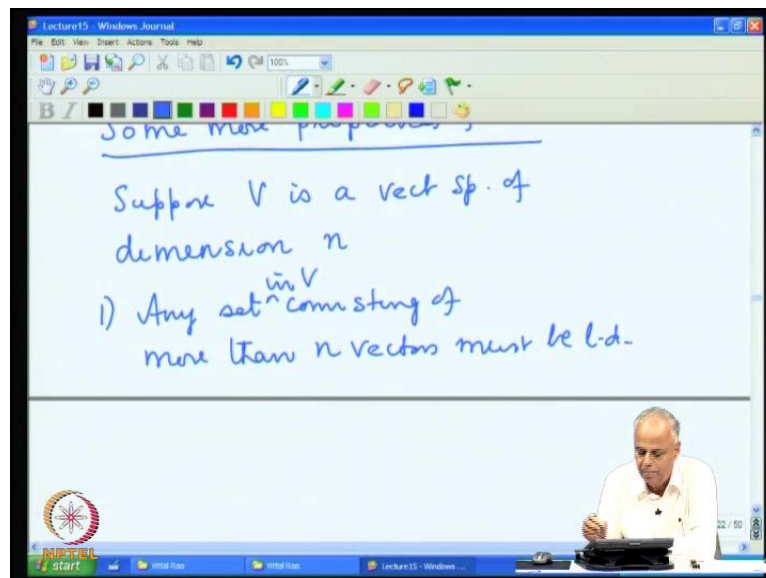 Lecture15 - Windows Journal
File Edit View Insert Actions Tools Help
100%
B I
Some more properties
Suppose V is a vect sp. of
dimension n
in V
1) Any set ^ consisting of
more than n vectors must be l.d.
22 / 50
NPTEL
start Vittal Rao Vittal Rao Lecture15 - Windows ...